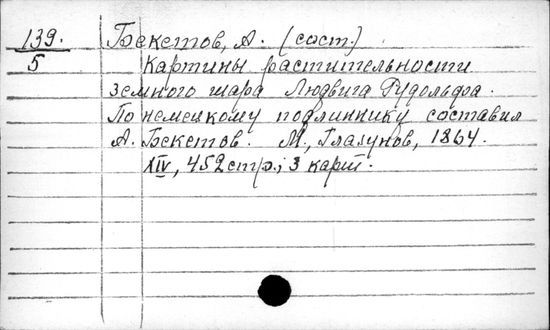 139. Бекетов, А. (сост.)
5 Картины растительности
земного шара Людвига Рудольфа.
По немецкому подлиннику составил
А. Бекетов. М., Глазунов, 1864.
XIV, 452 стр.; 3 карт.